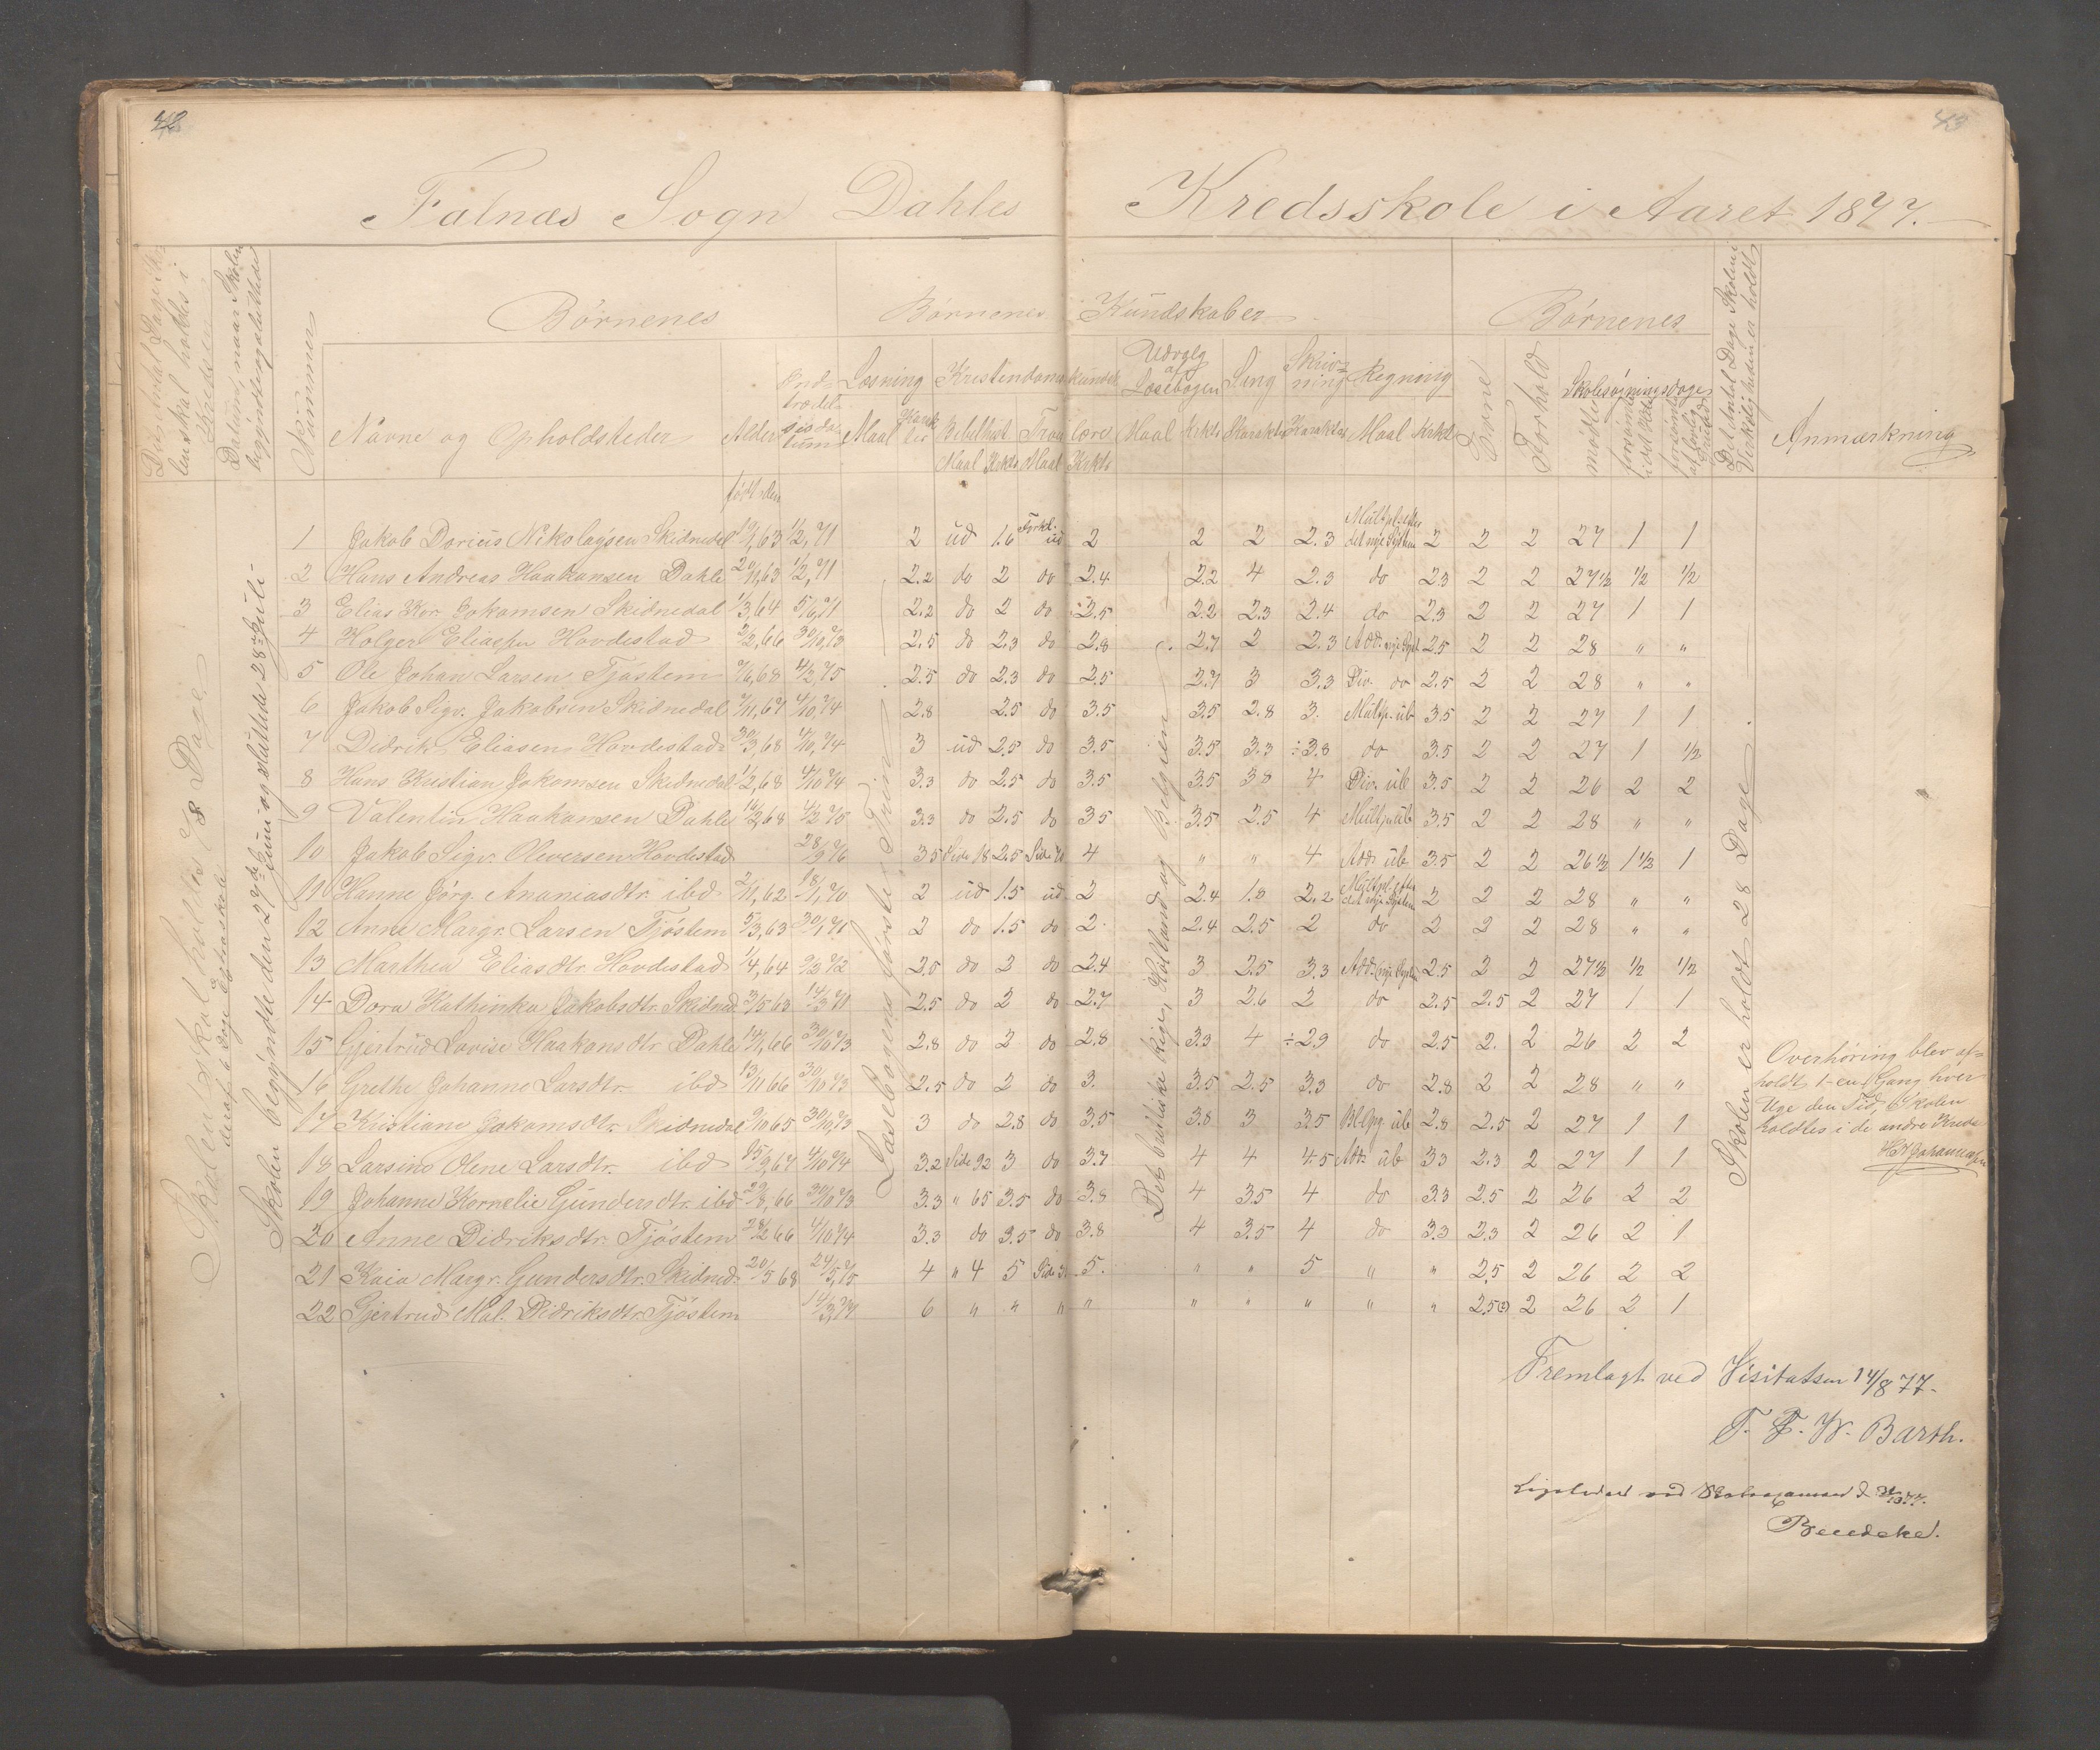 42
43
Falnæs Sogn Dahles Kredsskole i Aaret 1877.
Det Antal Dage Skolen skal holdes i Kredsen
Datum, naar Skolen begyndes og sluttedes
Nummer
Børnenes
Børnenes Kundskaber
Børnenes
Det Antal Dage Skolen i Virkeligheden er holdt
Anmærkning
Navne og Opholdssteder
Alder
Indtrædelsesdatum
Læsning
Kristendomskundskab
Udvalg af Læsebogen
Sang
Skrivning
Regning
Evne
Forhold
Skolesøgningsdage
Maal
Karakter
Bibelhist.
Troeslære
Maal
Maal
mødte
forsømte i det Hele
forsømte af lovlig Grund
født den
Skolen skal holdes 28 Dage
deraf 6 Dage Ettaskole
Skolen begyndte den 27de Juni og sluttede 28de Juli
Læsebogens første Trin
Det britiske Rige, Holland og Belgien
Skolen er holdt 28 Dage.
1 Jakob Dorius Nikolaysen Skidnedal 19/1,63 1/2,71 2 ud 1.6 Forkl. ud 2 2 2 2.3 Multpl. efter det nye System 2 2 2 27 1 1
2 Hans Andreas Haakonsen Dahle 20/11,63 1/2,71 2.2 do 2 do 2.4 2.2 4 2.3 do 2.3 2 2 27½ ½ ½
3 Elias Kor. Jokamsen Skidnedal 1/3,64 5/6,71 2.2 do 2 do 2.5 2.2 2.3 2.4 do 2.3 2 2 27 1 1
4 Holger Eliassen Hovdestad 2/2,66 30/10,73 2.5 do 2.3 do 2.8 2.7 2 2.3 Add. nye Syst. 2.5 2 2 28 " "
5 Ole Johan Larsen Tjøstem 7/6,68 4/2,75 2.5 do 2.3 do 2.5 2.7 3 3.3 Div. do 2.5 2 2 28 " "
6 Jakob Sigv. Jakobsen Skidnedal 7/11,67 4/10,74 2.8 2.5 do 3.5 3.5 2.8 3. Multp. üb 3.5 2 2 27 1 1
7 Didrik Eliasen Hovdestad 30/3,68 4/10,74 3 ud 2.5 do 3.5 3.5 3.3 ÷3.8 do 3.5 2 2 27 1 ½
8 Hans Kristian Jokamsen Skidnedal 1/2,68 4/10 74 3.3 do 2.5 do 3.5 3.5 3.8 4 Div. üb 3.5 2 2 26 2 2
9 Valentin Haakonsen Dahle 14/2,68 4/2 75 3.3 do 2.5 do 3.5 3.5 2.5 4 Multp. üb 3.5 2 2 28 " "
10 Jakob Sigv. Oleversen Hovdestad 28/9 76 3.5 Side 18 2.5 Side 70 4 " " 4 Add. üb 3.5 2 2 26½ 1½ 1
11 Hanne Jørg. Ananiasdtr. ibd 2/11,62 18/1,70 2 ud 1.5 ud 2 2.4 1.8 2.2 Multpl. efter det nye System 2 2 2 28 " "
12 Anne Margr. Larsen Tjøstem 5/3,63 30/1,71 2 do 1.5 do 2. 2.4 2.5 2 do 2 2 2 28 " "
13 Marthea Eliasdtr. Hovdestad 1/4,64 9/2 72 2.5 do 2 do 2.4 3 2.5 3.3 Add. nye System 2.5 2 2 27½ ½ ½
14 Dora Kathinka Jakobsdtr. Skidned. 3/5 63 14/3 71 2.5 do 2 do 2.7 3 2.6 2 do 2.5 2.5 2 27 1 1
15 Gjertrud Lovise Haakonsdtr Dahle 14/1,66 30/10 73 2.8 do 2 do 2.8 3.3 4 ÷2.9 do 2.5 2. 2 26 2 2
16 Grethe Johanne Larsdtr. ibd 13/11 66 30/10 73 2.5 do 2 do 3. 3.5 2.5 3.3 do 2.8 2 2 28 " "
17 Kristiane Jokamsdtr. Skidnedal 9/10 65 30/10,73 3 do 2.8 do 3.5 3.8 3 3.5 üb 2.8 2.5 2 27 1 1
18 Larsine Olene Larsdtr. ibd 25/9,67 4/10 74 3.2 Side 92 3 do 3.7 4 4 4.5 Add. üb 3.3 2.3 2 27 1 1
19 Johanne Kornelie Gundersdtr. ibd 29/8,66 30/10 73 3.3 " 65 3.5 do 3.8 4 3.5 4 do 3.3 2.5 2 26 2 2
20 Anne Didriksdtr. Tjøstem 28/2 66 4/10 74 3.3 do 3.5 do 3.8 4 3.5 4 do 3.3 2.3 2 26 2 1
21 Kaia Margr. Gundersdtr. Skidned. 20/5 68 24/5,75 4 " 4 5 Side 5. " " 5 " " 2.5 2 26 2 2
22 Gjertrud Mal. Didriksdtr. Tjøstem 14/3,77 6 " " " " " " " " " 2.5 2 26 2 1
Overhøring blev afholdt 1 en Gang hver
Uge den Tid Skolen
holdtes i de andre Kredse
Fremlagt ved Visitatsen 14/8 77.
T. F. W. Barth.
Ligeledes ved Skoleexamen d.
Benedeke.